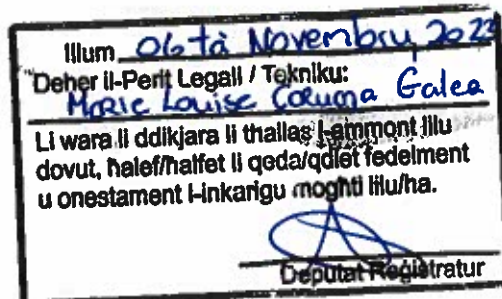 Illum 06 ta' Novembru, 2023
Deher il-Perit Legali / Tekniku:
Marie Louise Caruana Galea
Li wara li ddikjara li tħallas l-ammont lilu
dovut, ħalef/ħalfet li qeda/qdiet fedelment
u onestament l-inkarigu mogħti lilu/ha.
Deputat Reġistratur